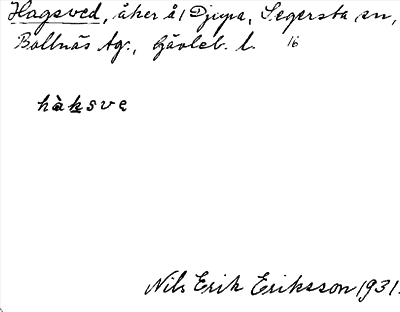 Hagsved, åker å / Djupa, Segersta sn,
Bollnäs tg., Gävleb. l. 16
hàksve
Nils Erik Eriksson 1931.